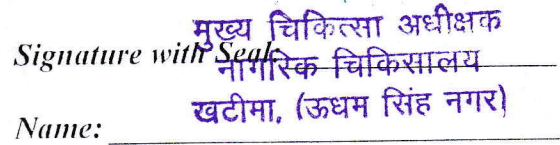 मुख्य चिकित्सा अधीक्षक
Signature with Seal:
नागरिक चिकिसालय
खटीमा, (ऊधम सिंह नगर)
Name: